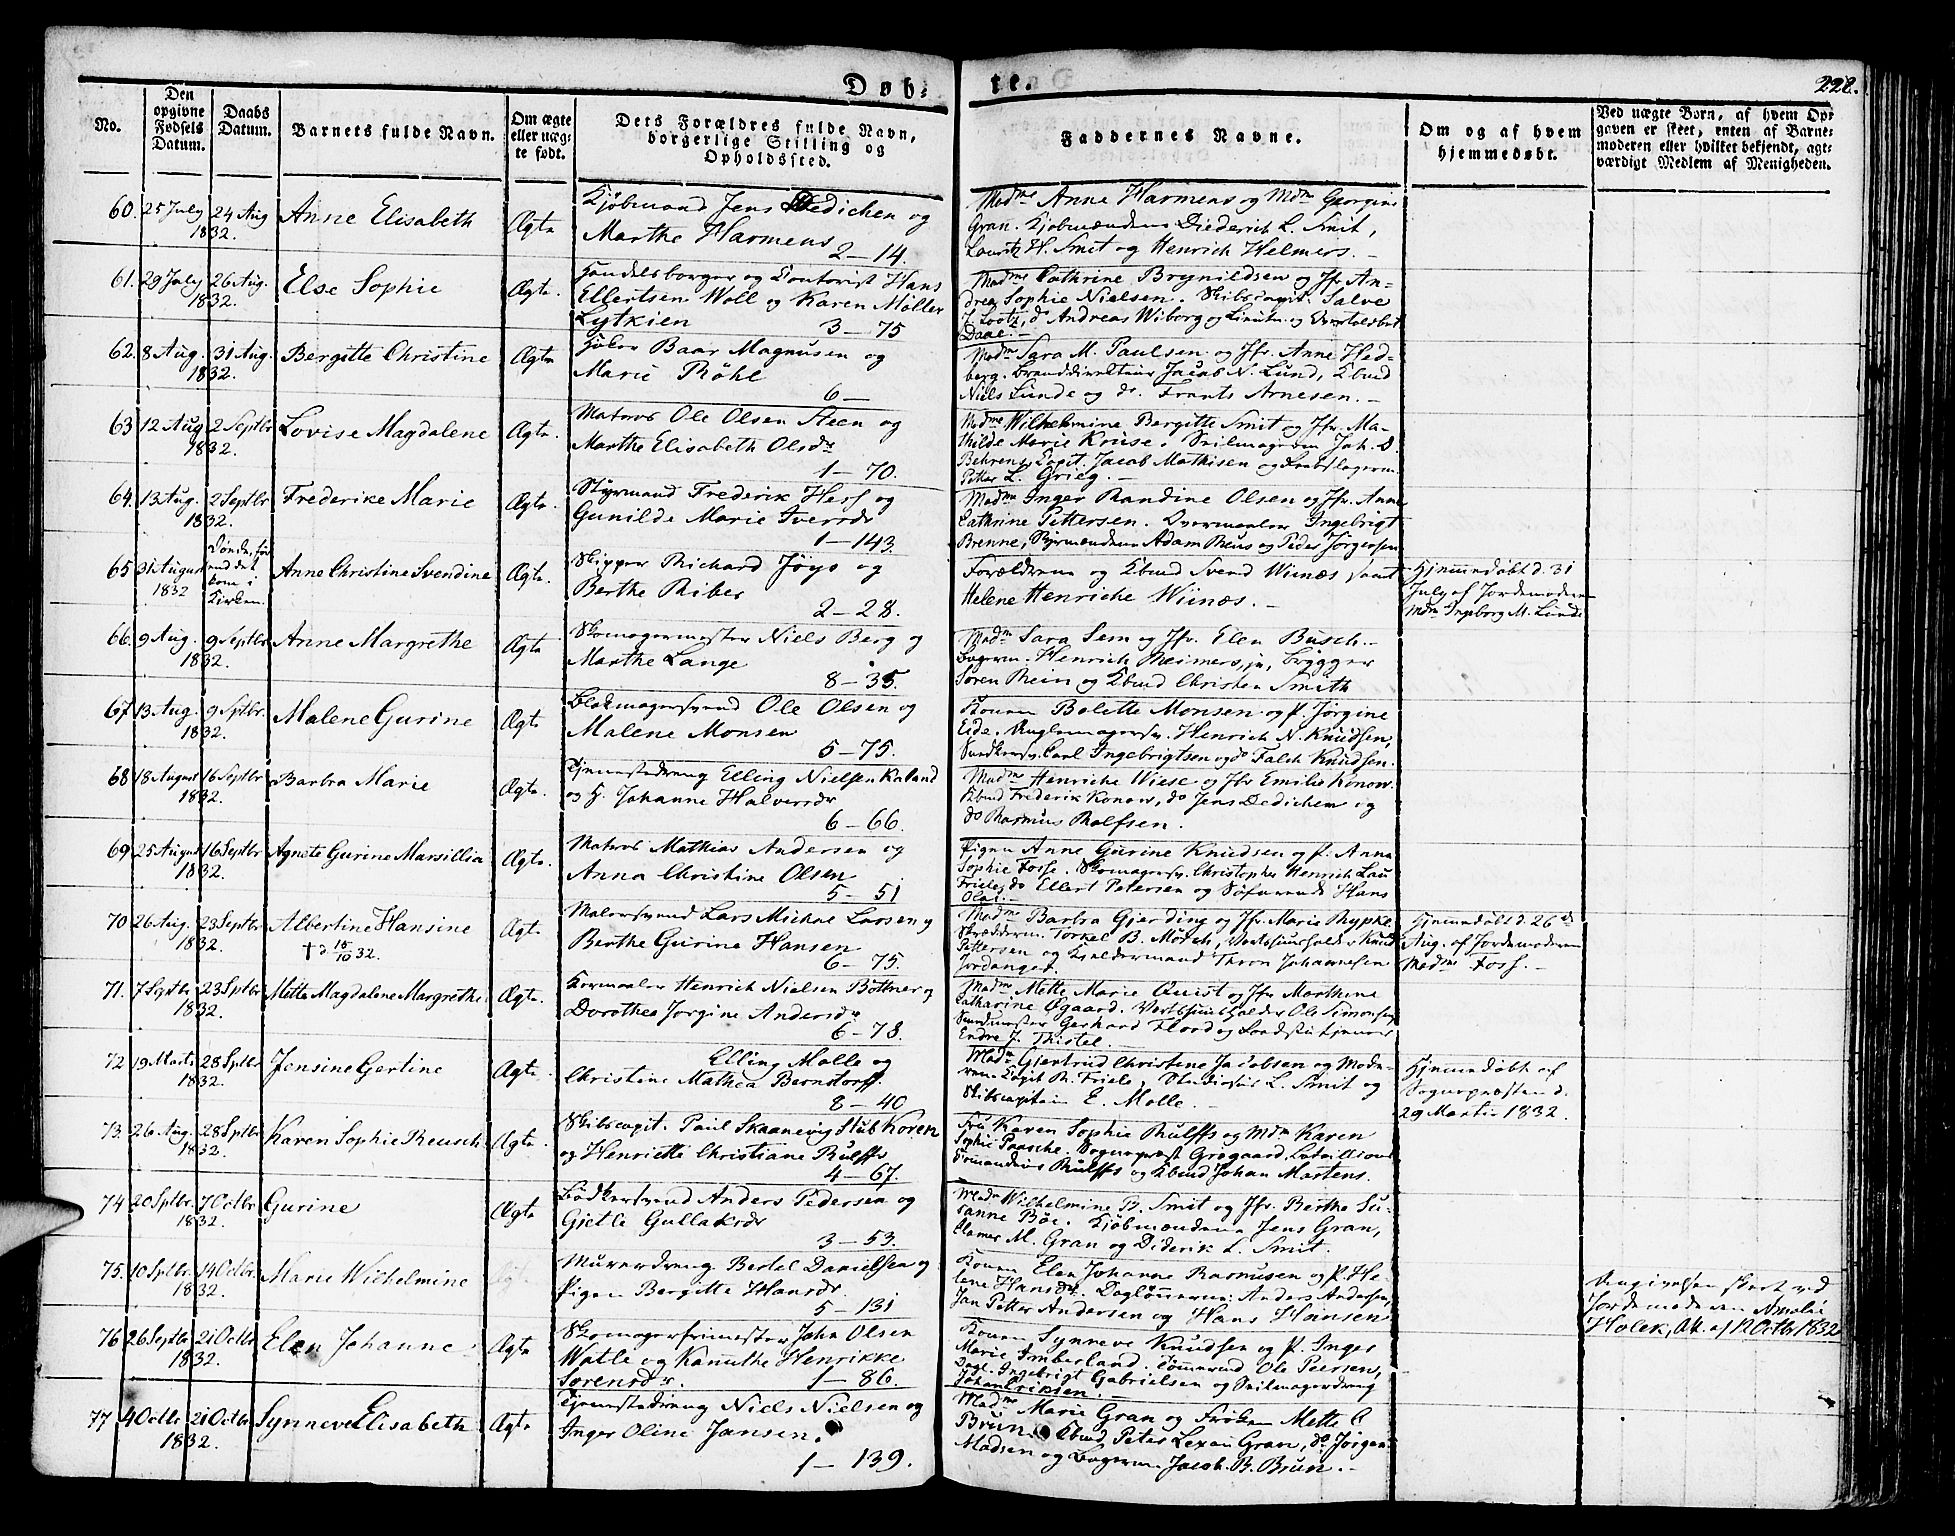 Døb-
te.
228.
No.
Den opgivne Fødsels Datum.
Daabs Datum.
Barnets fulde Navn.
Om ægte eller uægte født.
Dets Forældres fulde Navn, borgerlige Stilling og Opholdssted.
Faddernes Navne.
Om og af hvem hjemmedøbt.
Ved uægte Børn, af hvem Opgaven er skeet, enten af Barnemoderen eller hvilket bekjendt, agtværdigt Medlem af Menigheden.
60. 25 July 24 Aug 1832. Anne Elisabeth Ægte
Kjøbmand Jens Dedichen og
Marthe Harmens 2-14.
Madme Anne Harmens og Mdm Georgine
Gran. Kjøbmændene Diederich L. Smit,
Lauritz H. Smit og Henrich Helmers.
61. 29 July 26 Aug. 1832. Else Sophie Ægte.
Handelsborger og Contorist Hans
Ellertsen Woll og Karen Møller
Lytkien 3-75
Madme Cathrine Brynildsen og Jfr. An-
drea Sophie Nielsen. Skibscapit. Salve
J. Lootz, do Andreas Wiborg og
Daae.
62. 8 Aug. 31 Aug. 1832. Bergitte Christine Ægte
Høker Baar Magnusen og
Marie Røhl 6-
Madm Sara M. Paulsen og Jfr. Anne Hed-
berg. Branddirekteur Jacob N. Lund, Kbmd
Niels Lunde og do. Frants Arnesen.
63 12 Aug 2 Septbr 1832. Lovise Magdalene Ægte.
Matros Ole Olsen Steen og
Marthe Elisabeth Olsdr
1-70.
Madme Wilhelmine Bergitte Smit og Jfr. Ma-
thilde Marie Kruse. Seilmagerm Joh. D.
Behrens, Capit. Jacob Mathisen og
Petter L. Grieg.
64. 13 Aug. 2 Septbr 1832. Frederike Marie Ægte.
Styrmand Frederik Herf og
Gunilde Marie Iversdr
1-143.
Madme Inger Randine Olsen og Jfr. Anne
Cathrine Pettersen. Ingebrigt
Brenne, Styrmændene Adam Reus og Peder Jørgensen
65 31 August 1832 Anne Christine Svendine Ægte.
Døde, før
end det
kom i
Kirken.
Skipper Richard Jøys og
Berthe Riber
2-28.
Forældrene og Kbmd Svend Wiinæs samt
Helene Henriche Wiinæs.
Hjemmedøbt d. 31
July af Jordemoderen
Mdm Ingeborg M. Lunde
66. 9 Aug. 9 Septbr 1832. Anne Margrethe Ægte
Skomagermester Niels Berg og
Marthe Lange
8-35.
Madm Sara Sem og Jfr. Elen Busch.
Bagerm. Henrich Reimers, jn, brygger
Søren Rein og Kbmd Christen Smith
67. 13 Aug. 9 Sptbr. 1832. Malene Gurine Ægte
Blokmagersvend Ole Olsen og
Malene Monsen
5-75.
Konen Bolette Monsen og P. Jørgine
Eide. Henrich N. Knudsen,
Carl Ingebrigtsen og do Falch Knudsen.
68 18 August 16 Septbr 1832. Barbra Marie Ægte.
Tjenestedreng Elling Nielsen Kaland
og H. Johanne Halversdr
6-66.
Madme Henriche Wiese og Jfr Emilie Konow.
Kbmd Frederik Konow, do Jens Dedichen og
do Rasmus Rolfsen.
69 25 August 16 Septbr 1832. Agnete Gurine Marsillia Ægte.
Matros Mathias Andersen og
Anna Christine Olsen
5-51
Pigen Anne Gurine Knudsen og P. Anna
Sophie Fosse. Skomagersv. Christopher Henrich Lau
Friele, do Ellert Petersen og Søfarende Hans
Olai.
70 26 Aug. 23 Septbr 1832. Albertine Hansine Ægte.
† d 16/10 32.
Malersvend Lars Michael Larsen og
Berthe Gurine Hansen
6-75.
Madme Barbra Gjerding og Jfr. Marie Rypke.
Skrædderm. Torkel B. Mørch, Knud
Pettersen og Kjeldermand Thron Johannesen
Jordanger.
Hjemmedøbt d. 26de
Aug. af Jordemoderen
Madme Foss.
71. 7 Septbr 23 Sptbr 1832. Mette Magdalene Margrethe Ægte.
Henrich Nielsen Bøttner og
Dorothea Jørgine Andersdr
6-78.
Madm Mette Marie Quist og Jfr Marthine
Catharine Øgaard. Ole Simonsen,
Gerhard Flood og
Endre J. Thistel.
72 19 Marts 28 Sptbr 1832. Jensine Gertine Ægte.
Elling Molle og
Christine Mathea Bernstorff.
8-40
Madm Gjertrud Christene Jacobsen og
Capit R. Friele, L. Smit og
Skibscapitain E. Molle.
Hjemmedøbt af
Sognepræsten d.
29 Martii 1832.
73. 26 Aug. 28 Sptbr 1832. Karen Sophie Reusch Ægte.
Skibscapit. Paul Skaanevig Stub Koren
og Henriette Christiane Rulffs
4-67.
Fru Karen Sophie Rulffs og Mdm Karen
Sophie Paasche. Sognepræst Grøgaard,
Rulffs og Kbmd Johan Martens.
74 20 Sptbr. 7 Octbr 1832. Gurine Ægte
Bødkersvend Anders Pedersen og
Gjetle Gullaksdr
3-53.
Madm Wilhelmine B. Smit og Jfr. Berthe Su-
sanne Bøe. Kjøbmændene Jens Gran,
Clamer M. Gran og Diderik L. Smit.
75. 10 Sptbr 14 Octbr. 1832. Marie Wilhelmine
Bertel Danielsen og
Pigen Bergitte Hansdr
5-131
Konen Elen Johanne Rasmusen og P. He-
lene Hansdr. Dagleierne: Anders Andersen,
Jan Petter Andersen og Hans Hansen
Angivelsen skeet ved
Jordemoderen Amalie
Holck, Att. af 12 Octbr 1832
76 26 Septbr 21 Octbr 1832. Elen Johanne Ægte
Skomagerfrimester John Olsen
Watle og Kanuthe Henrikke
Sørensdr. 1-86.
Konen Synneve Knudsen og P. Inger
Marie Amberland. Tømmermd Ole Peersen,
Dagl. Ingebrigt Gabrielsen og Seilmagerdreng
Johan Eriksen.
77 4 Octbr 21 Octbr 1832. Synneve Elisabeth Ægte.
Tjenestedreng Niels Nielsen og
Inger Oline Jansen.
1-139.
Madme Marie Gran og Frøken Mette C
Brun. Kbmd Peter Lexau Gran, do Jørgen
Madsen og Bagerm. Jacob B. Brun.